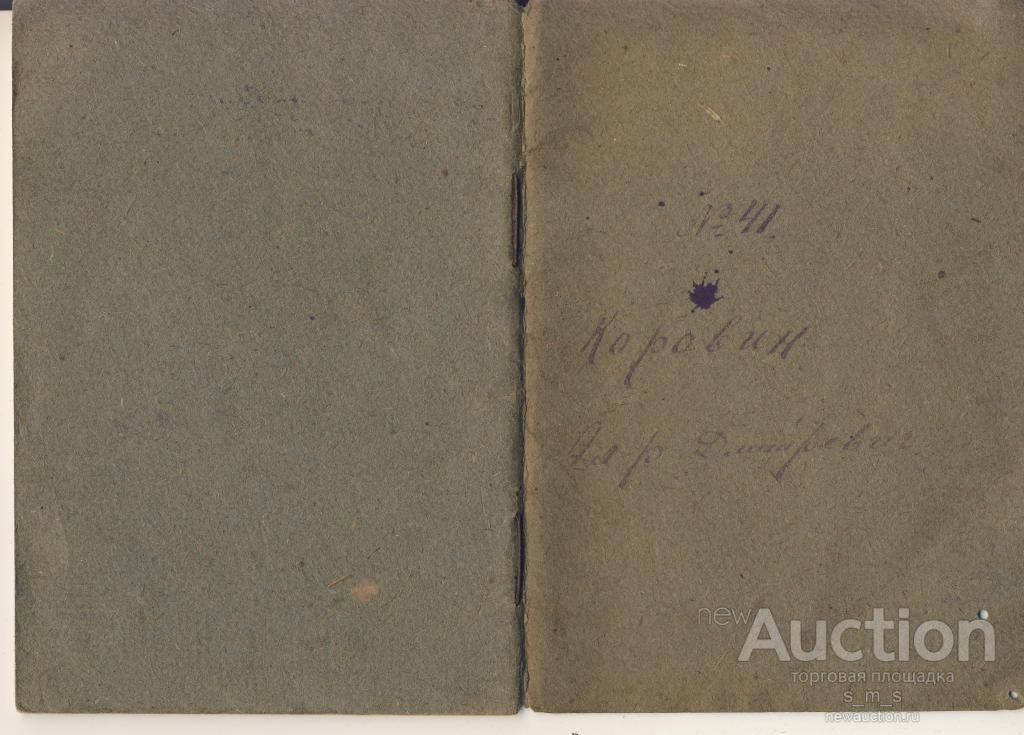 № 41
Коравин
Дмитревич
new Auction
торговая площадка
s_m_s
newauction.ru